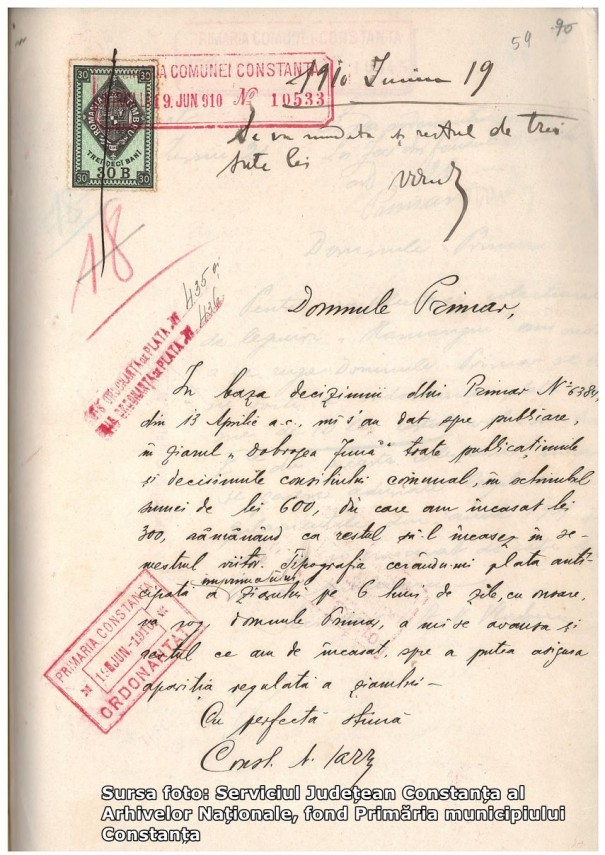 54 90
PRIMARIA COMUNEI CONSTANTA
19. JUN 910 № 10533
1910 Iunie 19
30 30
ROMANIA TIMBRU
TREI DECI BANI
30 B
30 30
Se va mandata și restul de trei
sute lei
18
435 și
436
EMIS ORDONANTA DE PLATA №
EMIS ORDONANTA DE PLATA №
Domnule Primar,
In baza deciziunii dlui Primar № 6384,
din 13 Aprilie a.c., mi s'au dat spre publicare,
în ziarul „Dobrogea Jună" toate publicațiunile
și decisiunile consiliului comunal, în schimbul
sumei de lei 600, din care am încasat lei
300, rămânând ca restul să-l încasez în se-
mestrul viitor. Tipografia cerându-mi plata anti-
cipată a imprimatului ziarului pe 6 luni de zile, cu onoare,
vă rog, domnule Primar, a mi se avansa și
restul ce am de încasat, spre a putea asigura
apariția regulată a ziarului—
Cu perfectă stimă
Const. N. Sarry
PRIMARIA CONSTANTA
19 JUN. 1910
ORDONANTAT
Sursa foto: Serviciul Județean Constanța al
Arhivelor Naționale, fond Primăria municipiului
Constanța